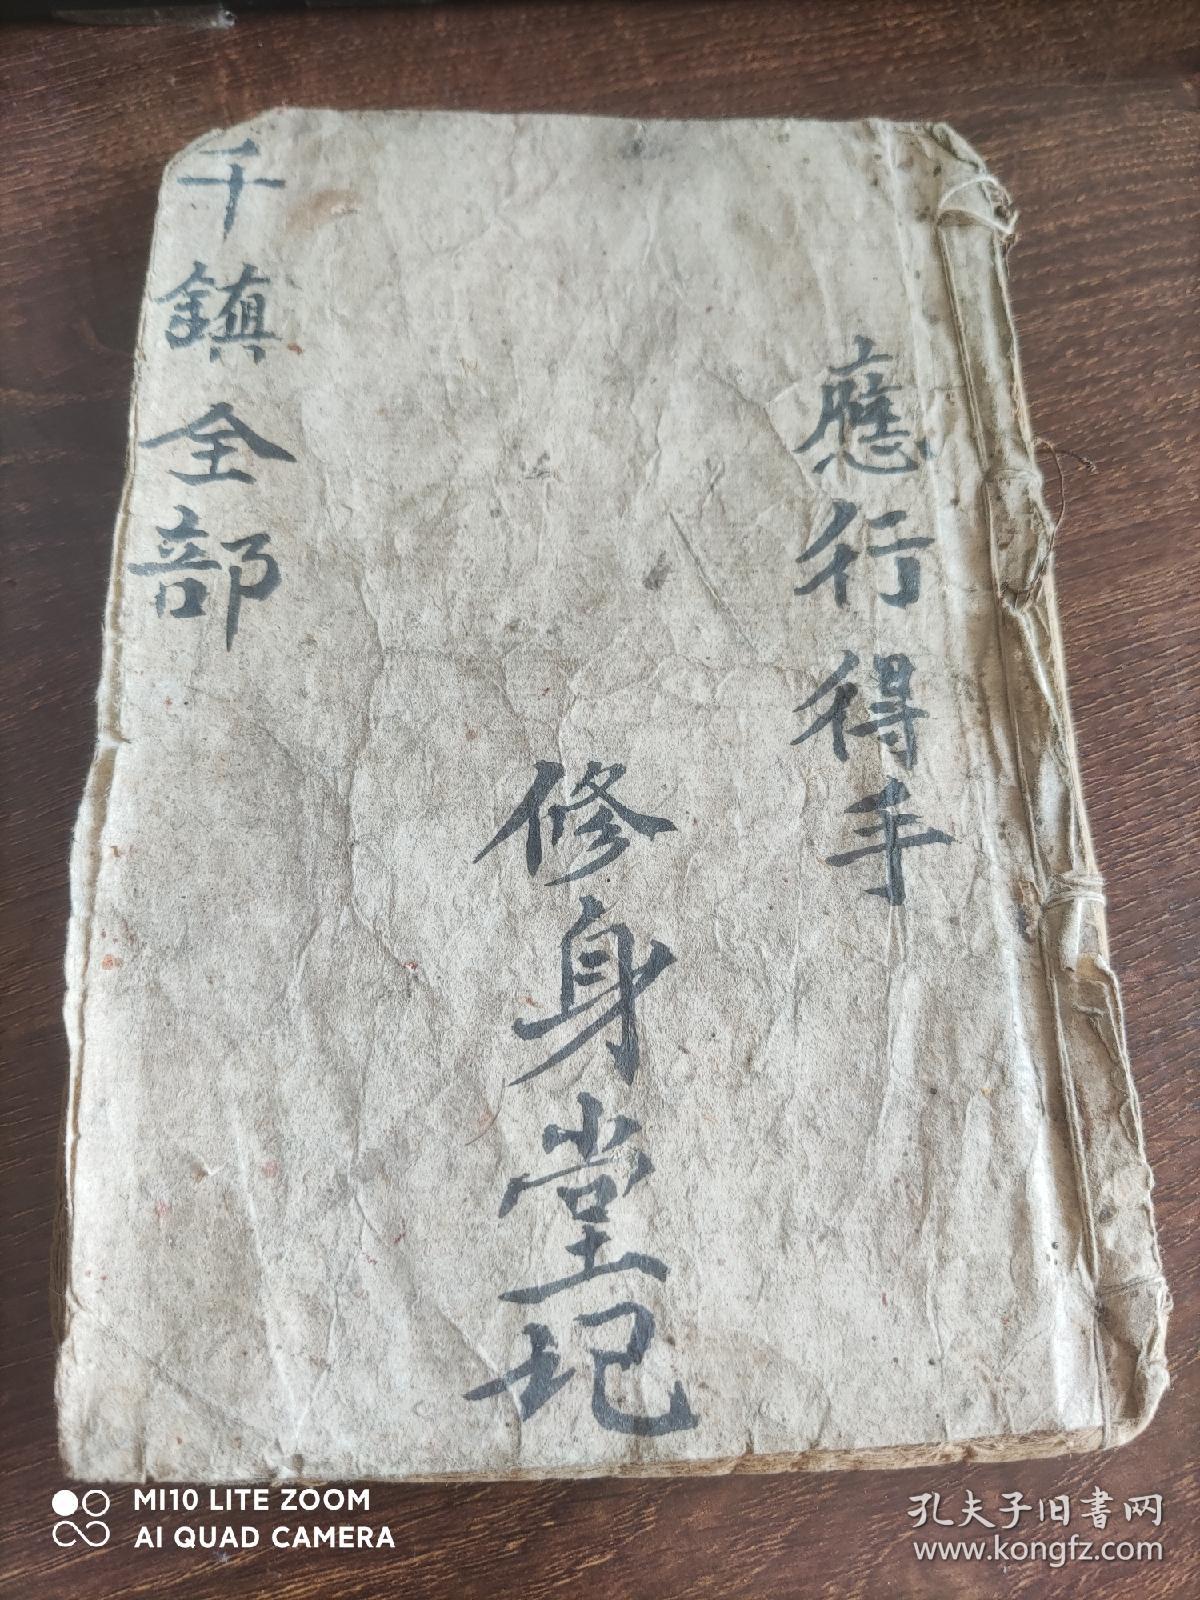 應行得手
修身堂记
千鎮全部
MI10 LITE ZOOM
AI QUAD CAMERA
孔夫子旧書网
www.kongfz.com